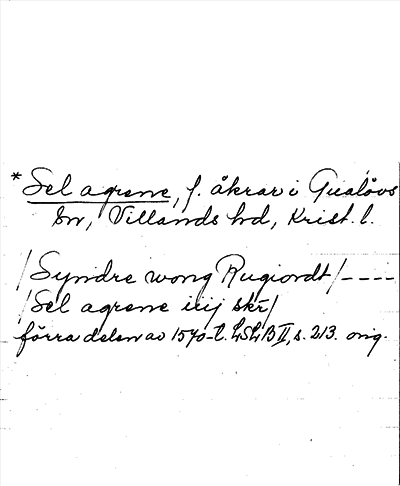 * Sel agrene, f. åkrar i Gualövs
sn, Villands hd, Krist. l.
/Syndre wong Rugiordt/----
/Sel agrene iiij skr/
förra delen av 1570-t. LSLB II, s. 213. orig.